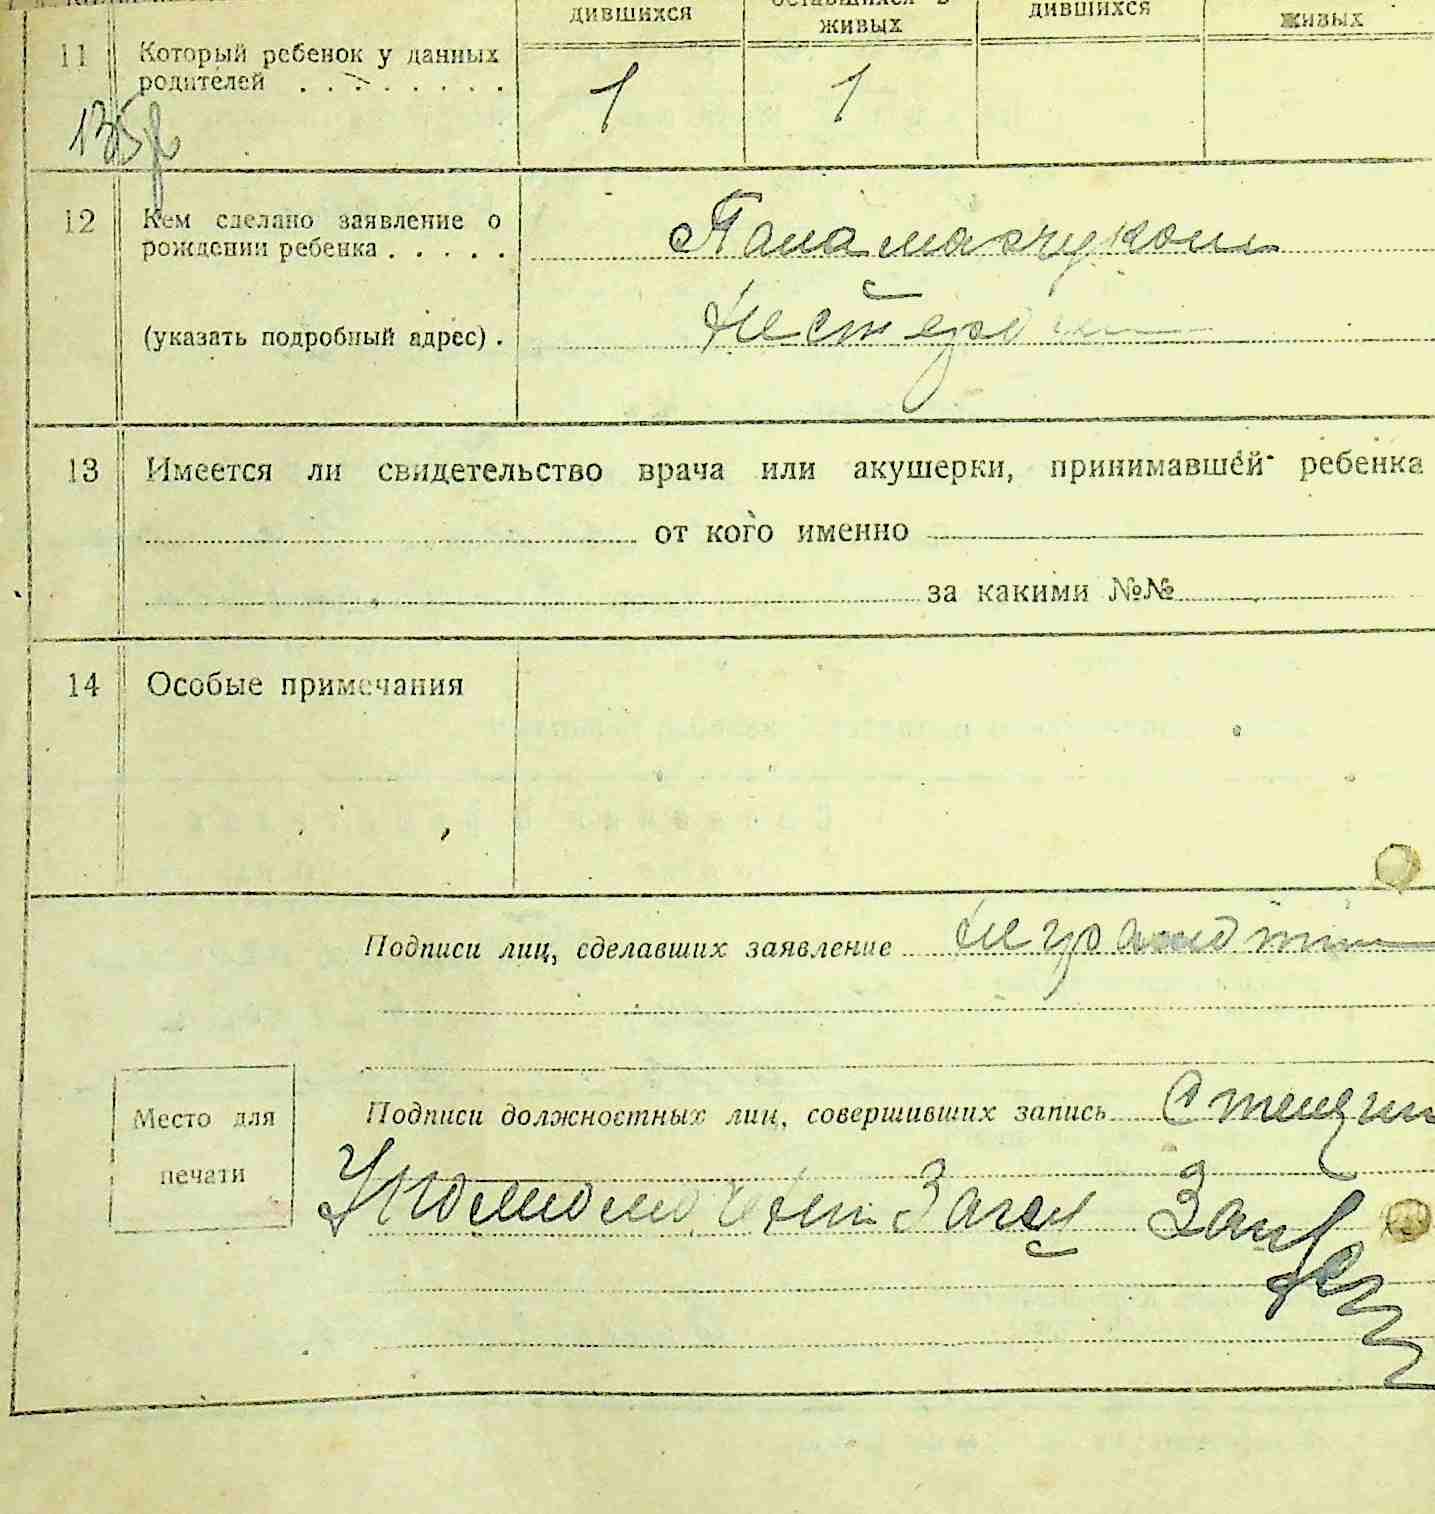 дившихся
живых
дившихся
живых
11 Который ребенок у данных
родителей . . . . . . . . 1 1
12 Кем сделано заявление о
рождении ребенка . . . . .
(указать подробный адрес) .
13 Имеется ли свидетельство врача или акушерки, принимавшей ребенка
от кого именно
за какими №№
14 Особые примечания
Подписи лиц, сделавших заявление неграмотн
Подписи должностных лиц, совершивших запись
Место для
печати